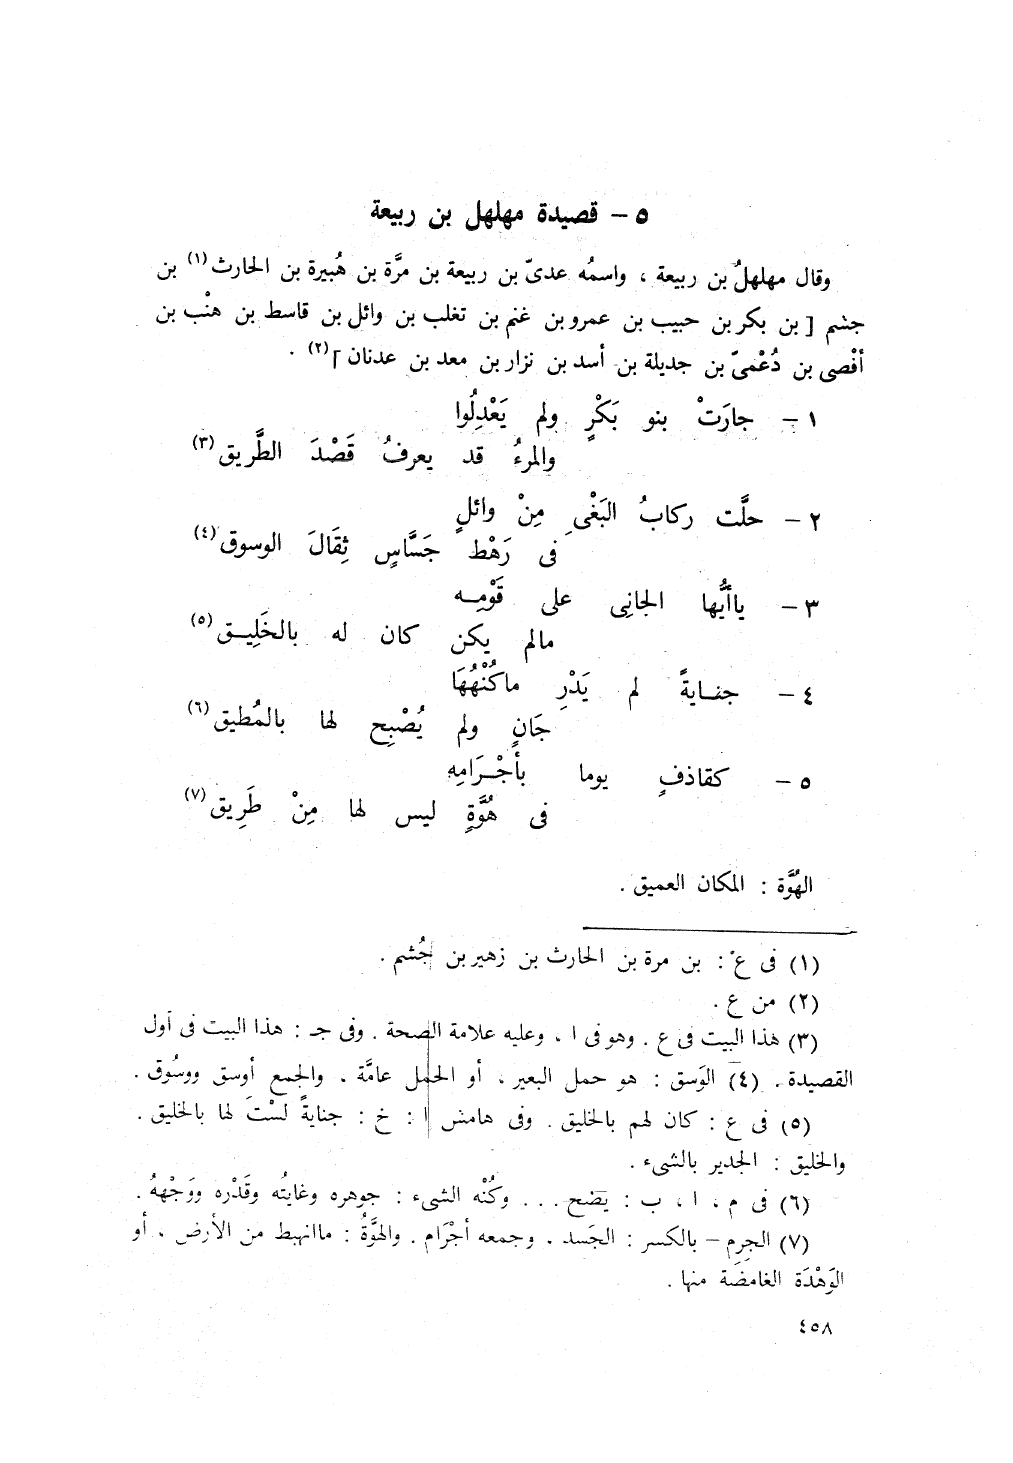 ٥ – قصيدة مهلهل بن ربيعة
وقال مهلهلُ بن ربيعة ، واسمُه عدىّ بن ربيعة بن مرَّة بن هُبيرة بن الحارث(١) بن
جشم [ بن بكر بن حبيب بن عمرو بن غنم بن تغلب بن وائل بن قاسط بن هنْب بن
أفْصى بن دُعْمىّ بن جديلة بن أسد بن نزار بن معد بن عدنان ](٢) .
١ – جارَتْ بنو بَكْرٍ ولم يَعْدِلُوا
والمرءُ قد يعرفُ قَصْدَ الطَّريق(٣)
٢ – حلَّت ركابُ البَغْىِ مِنْ وائلٍ
فى رَهْط جَسَّاسٍ ثِقَالَ الوسوق(٤)
٣ – ياأيُّها الجانِى على قَوْمِـه
مالم يكن كان له بالخَلِيـق(٥)
٤ – جنـايةً لم يَدْرِ ماكُنْهُهَا
جَانٍ ولم يُصْبِح لها بالمُطيق(٦)
٥ – كقاذفٍ يوما بأجْـرَامِهِ
فى هُوَّةٍ ليس لها مِنْ طَرِيق(٧)
الهُوَّة : المكان العميق .
(١) فى ع : بن مرة بن الحارث بن زهير بن جُشم .
(٢) من ع .
(٣) هذا البيت فى ع . وهو فى ا ، وعليه علامة الصحة . وفى جـ : هذا البيت فى أول
القصيدة . (٤) الوَسق : هو حمل البعير ، أو الحمل عامَّة . والجمع أوسق ووسُوق .
(٥) فى ع : كان لهم بالخليق . وفى هامش ا : خ : جنايةً لسْتَ لها بالخليق .
والخليق : الجدير بالشىء .
(٦) فى م ، ا ، ب : يضح . . . وكُنْه الشىء : جوهره وغايتُه وقَدْره ووَجْههُ .
(٧) الجِرم – بالكسر : الجَسد . وجمعه أجْرَام . والهوَّةُ : ماانهبط من الأرض ، أو
الوَهْدَة الغامضَة منها .
٤٥٨